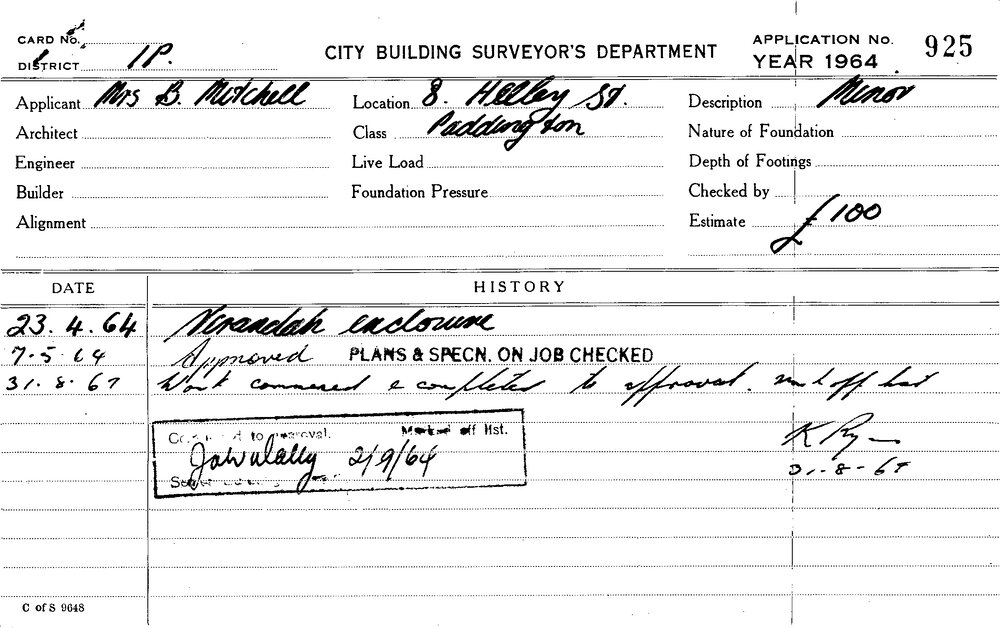 CARD No.
DISTRICT 1P.
CITY BUILDING SURVEYOR'S DEPARTMENT
APPLICATION No. 925
YEAR 1964
Applicant Mrs B. Mitchell
Location 8. Helley St.
Description Minor
Architect
Class Paddington
Nature of Foundation
Engineer
Live Load
Depth of Footings
Builder
Foundation Pressure
Checked by
Alignment
Estimate £100
DATE HISTORY
23.4.64 Verandah enclosure
7.5.64 Approved PLANS & SPECN. ON JOB CHECKED
31.8.67 Work commenced & completed to approval. marked off list
to approval. Marked off list.
2/9/64
K Ryan
31-8-67
C of S 9648